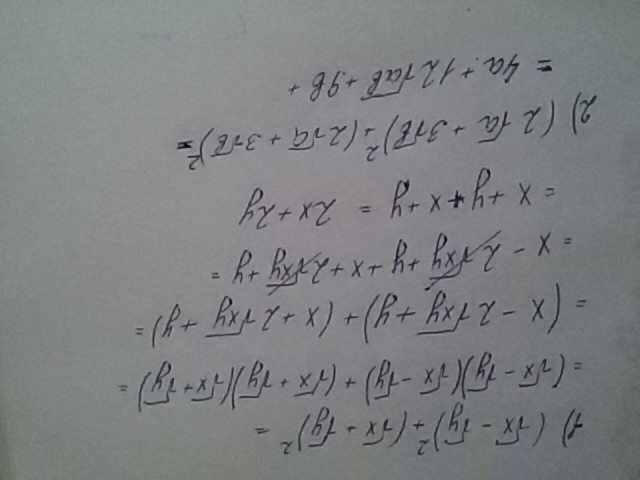 1) (√x - √y)² + (√x + √y)² =
= (√x - √y)(√x - √y) + (√x + √y)(√x + √y) =
= (x - 2√xy + y) + (x + 2√xy + y) =
= x - 2√xy + y + x + 2√xy + y =
= x + y + x + y = 2x + 2y
2) (2√a + 3√b)² + (2√a + 3√b)² =
= 4a + 12√ab + 9b +